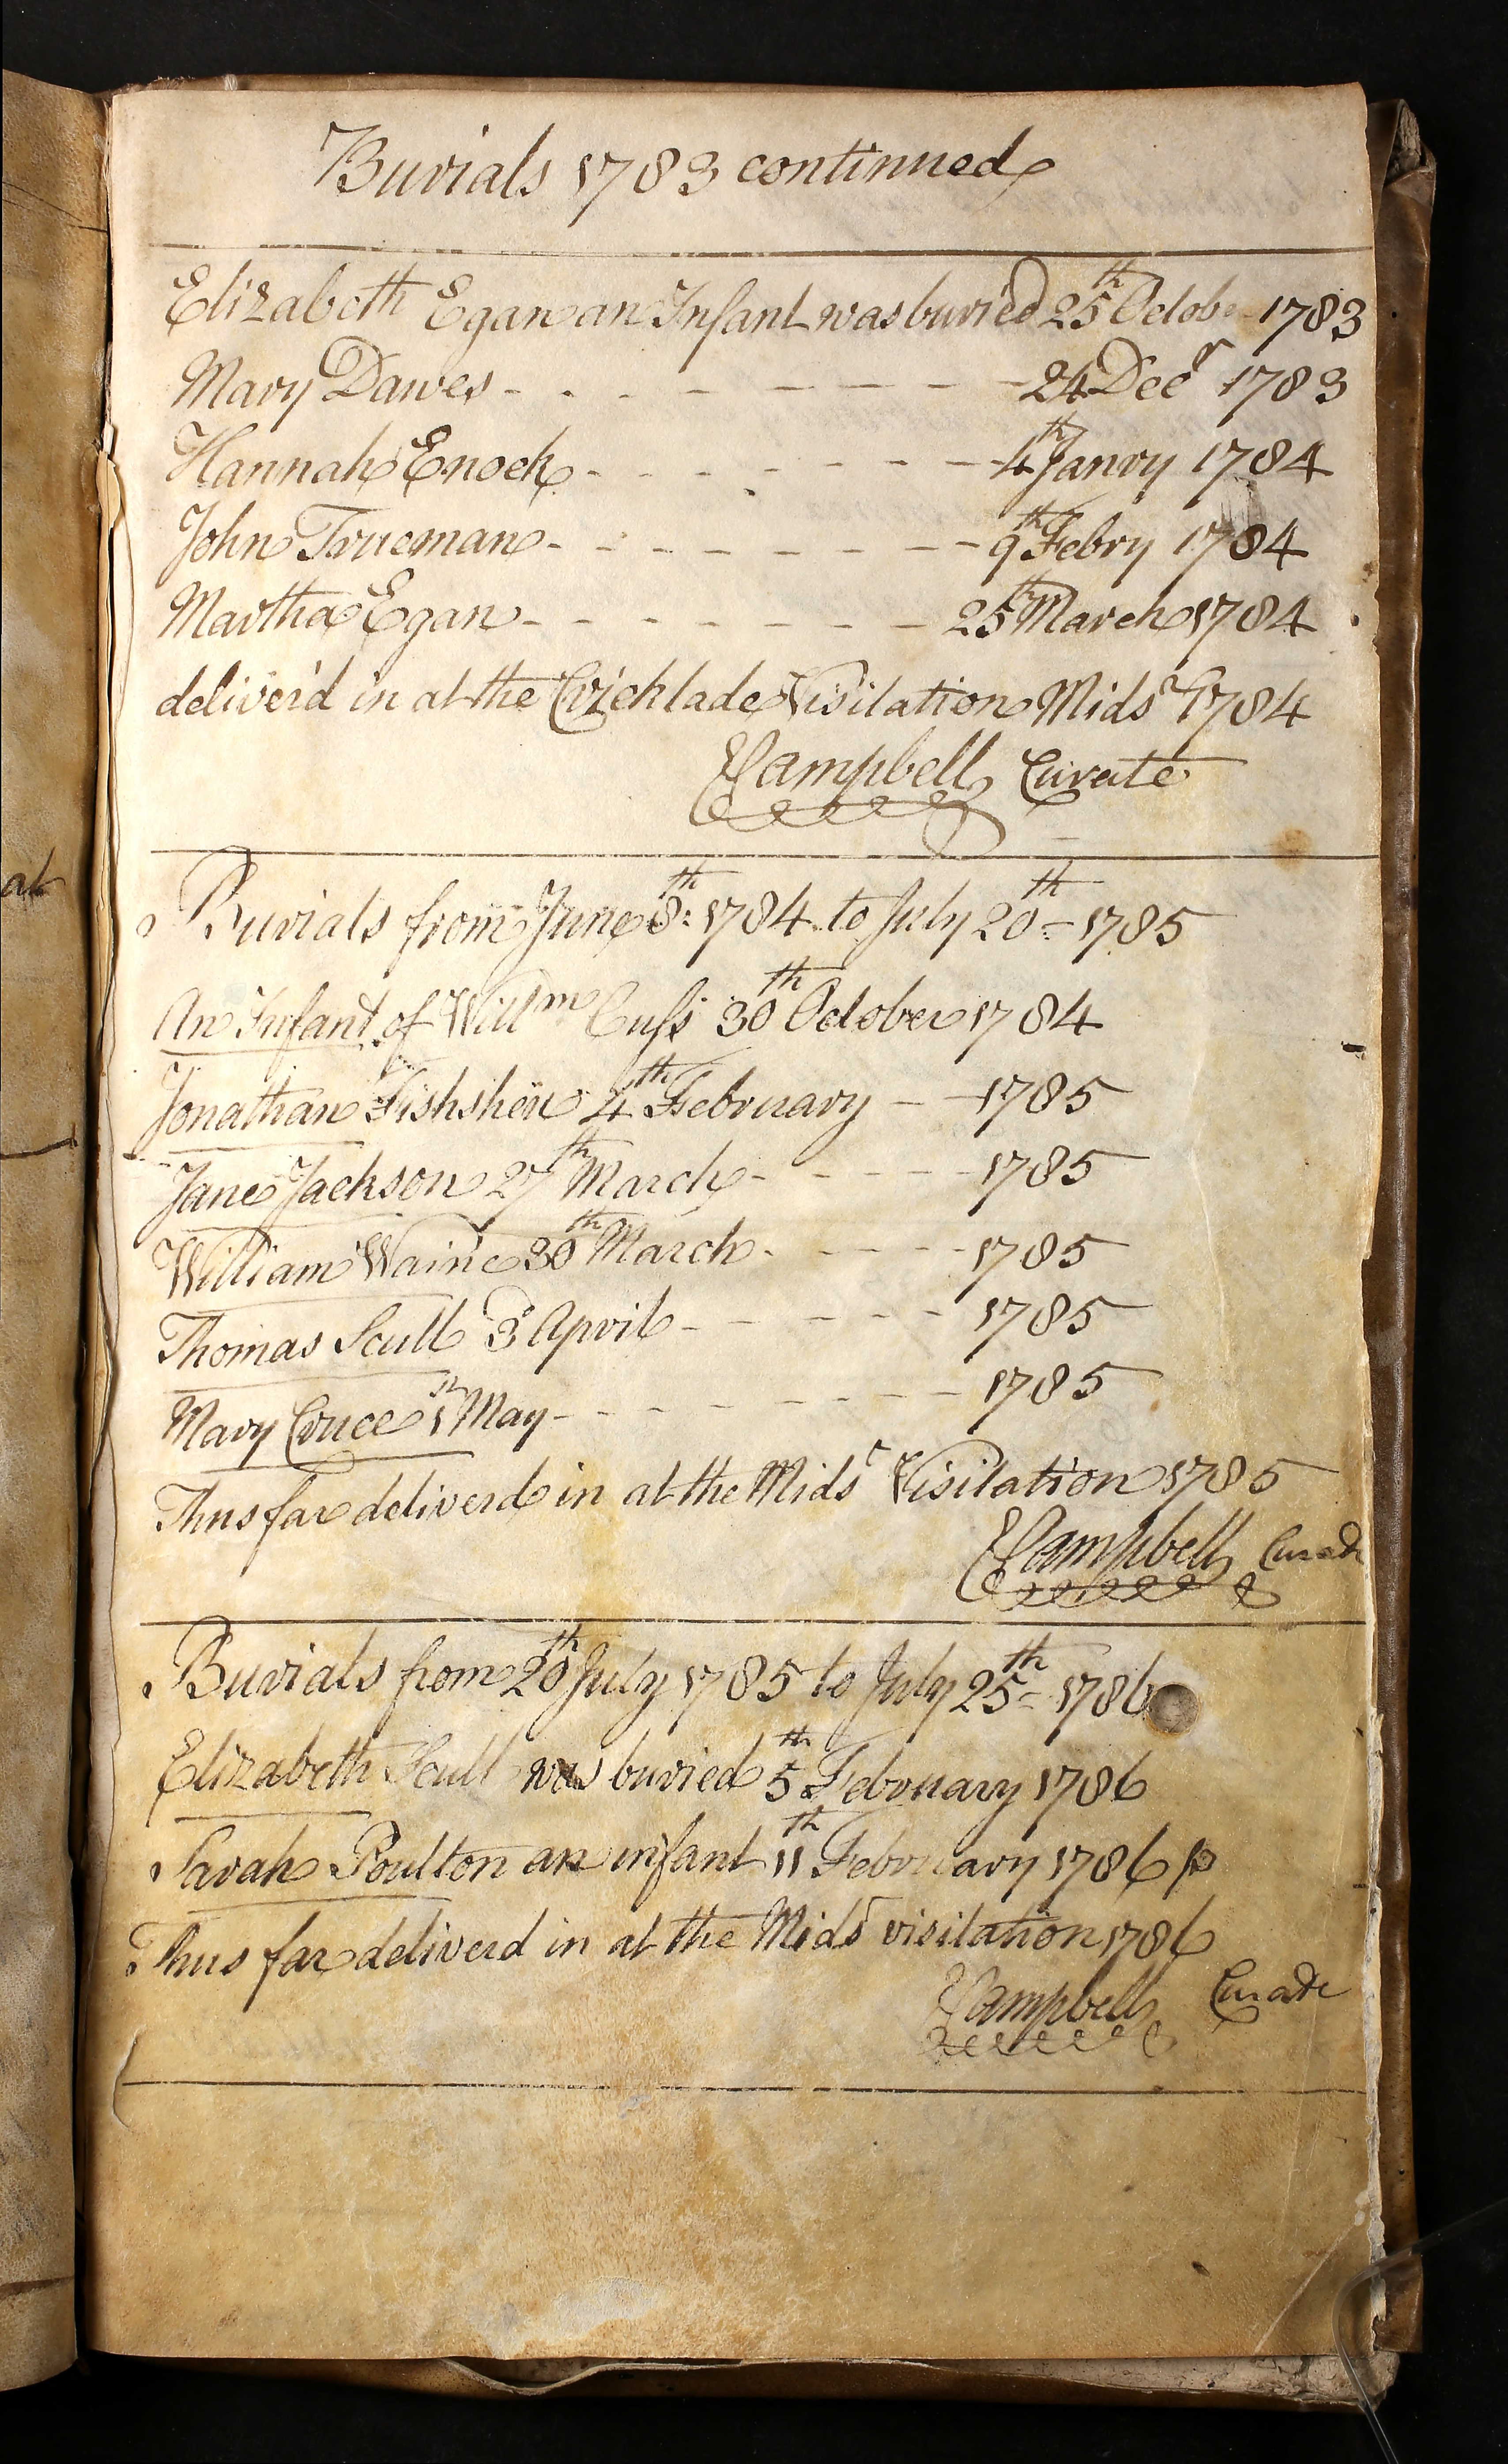 Burials 1783 continued
Elizabeth Egan an Infant was buried 25th Octobe 1783
Mary Dawes - - - - - - - - 24 Decr 1783
Hannah Enock - - - - - - - - 4th Janry 1784
John Trueman - - - - - - - - 9th Febry 1784
Martha Egan - - - - - - - - 25th March 1784
deliver'd in at the Cricklade Visitation Midsr 1784
ECampbell Curate
Burials from June 8th: 1784 to July 20th 1785
An Infant of Willm Cuss 30th October 1784
Jonathan 4th February - - 1785
Jane Jackson 27th March - - - - - 1785
William Waine 30th March - - - - - 1785
Thomas Scull 3d April - - - - - - 1785
Mary Cruce 1st May - - - - - - - - 1785
Thus far deliverd in at the Midsr Visitation 1785
ECampbell Curate
Burials from 20th July 1785 to July 25th 1786
Elizabeth Scull was buried 5th February 1786
Sarah Poulton an infant 11th February 1786 p
Thus far deliverd in at the Midsr visitation 1786
ECampbell Curate
at